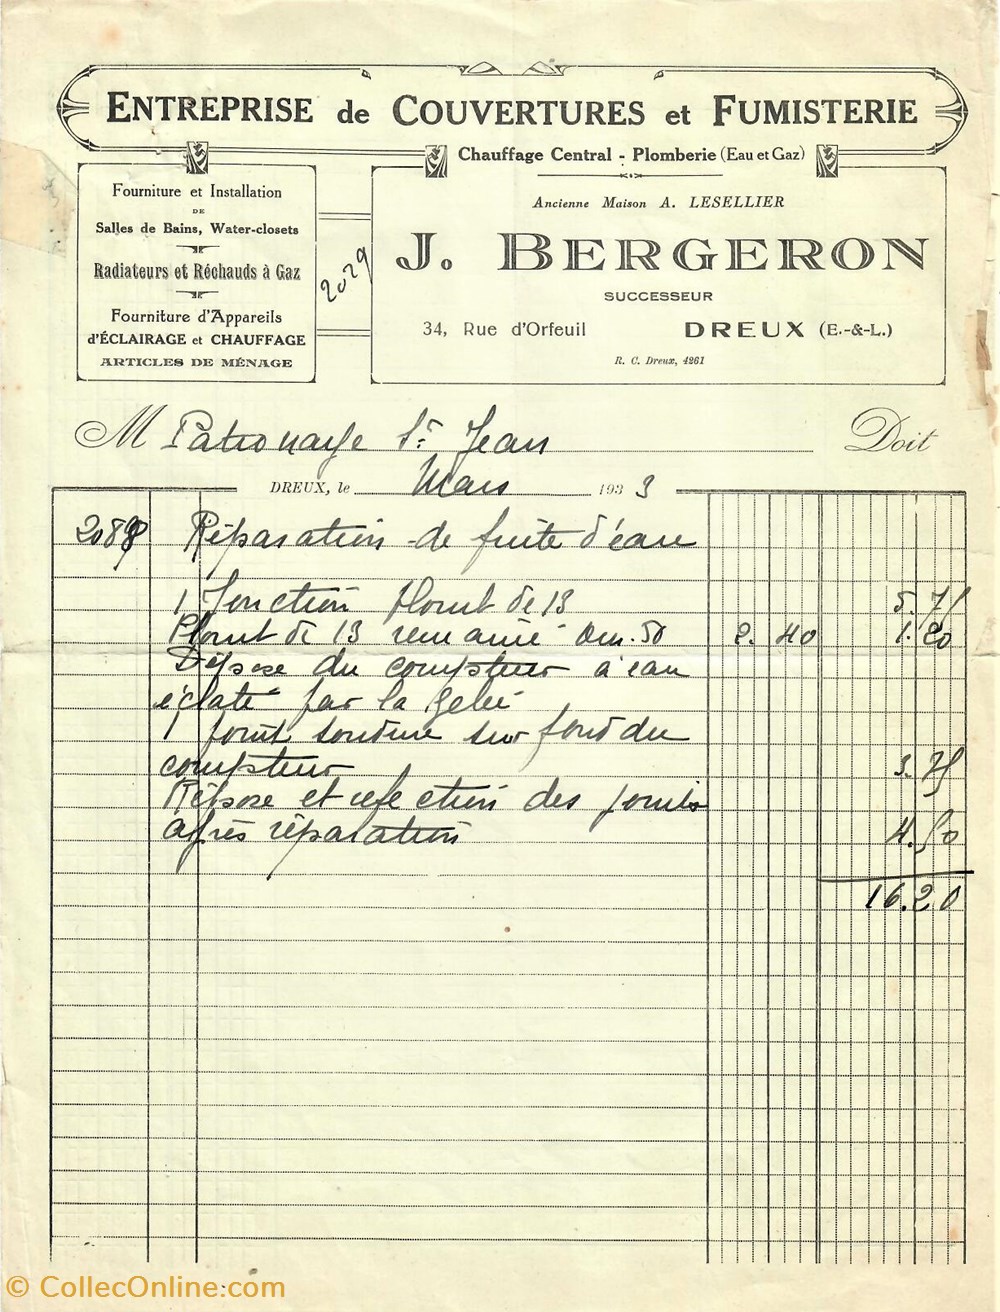 ENTREPRISE de COUVERTURES et FUMISTERIE
Chauffage Central - Plomberie (Eau et Gaz)
Fourniture et Installation
DE
Salles de Bains, Water-closets
Radiateurs et Réchauds à Gaz
Fourniture d'Appareils
d'ÉCLAIRAGE et CHAUFFAGE
ARTICLES DE MÉNAGE
2029
Ancienne Maison A. LESELLIER
J. BERGERON
SUCCESSEUR
34, Rue d'Orfeuil DREUX (E.-&-L.)
R. C. Dreux, 4261
M Patronage St Jean Doit
DREUX, le Mars 1933
Réparation de fuite d'eau
1 Jonction plomb de 13 5.75
Plomb de 13 remanié 0m.50 2.40 1.20
Dépose du compteur à eau
éclaté par la gelée
1 joint soudure sur fond du
compteur 3.75
Répose et refection des joints
après réparation 4.50
16.20
© CollecOnline.com